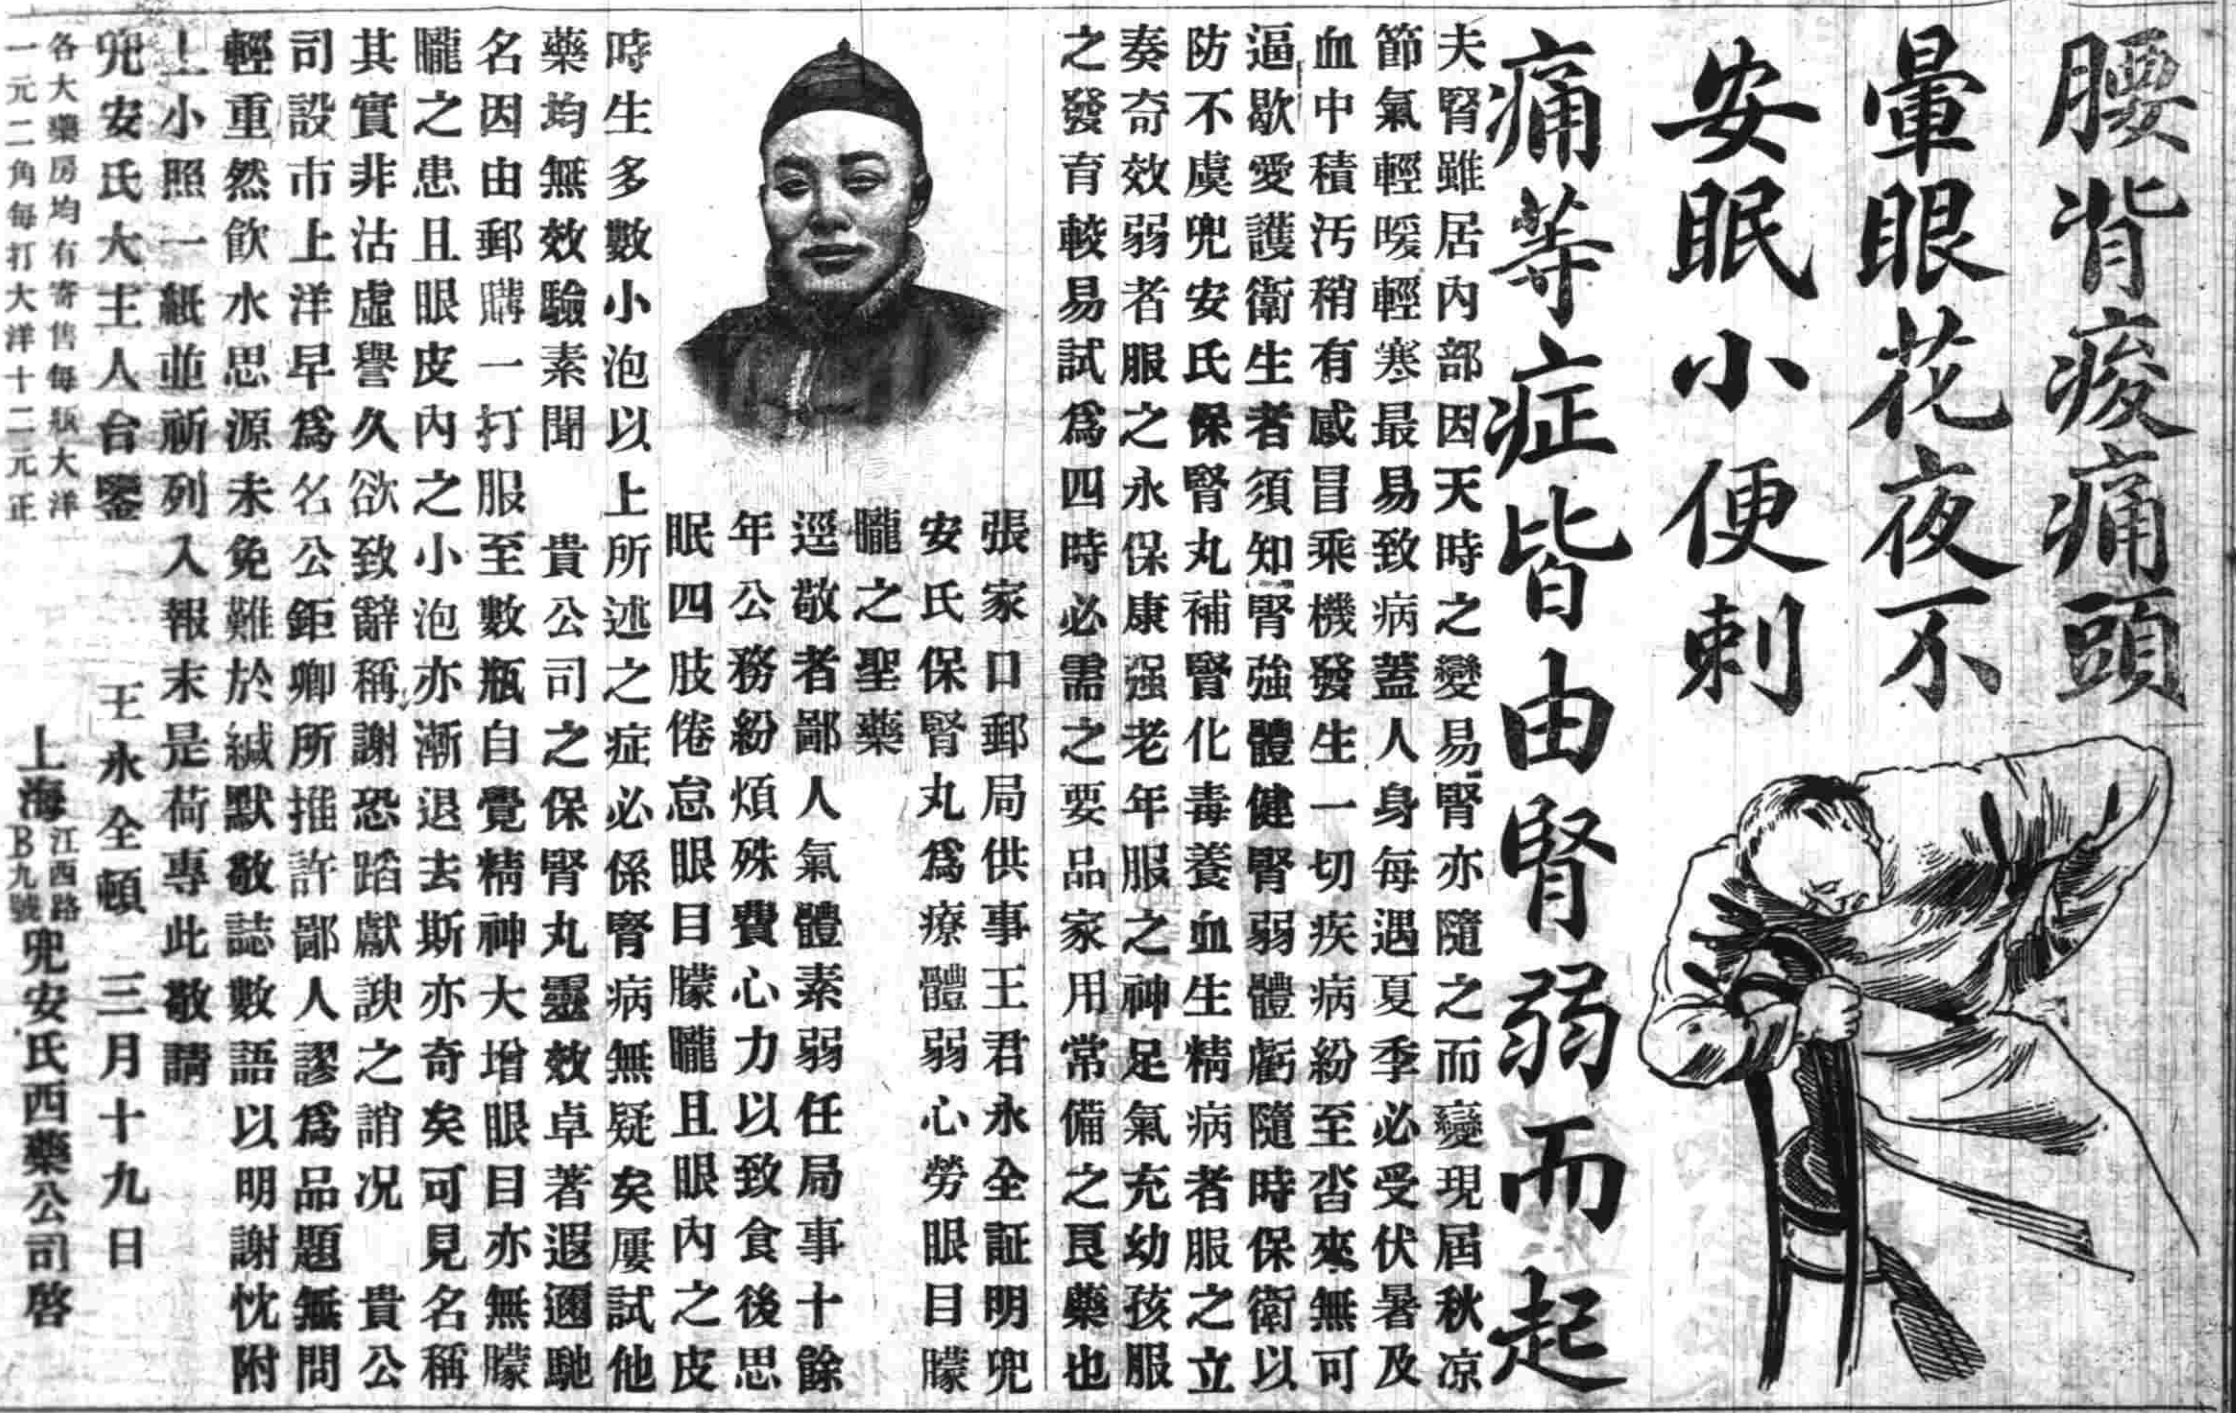 腰背痠痛頭
暈眼花夜不
安眠小便刺
痛等症皆由腎弱而起
夫腎雖居內部因天時之變易腎亦隨之而變現屆秋凉
節氣輕暖輕寒最易致病蓋人身每遇夏季必受伏暑及
血中積汚稍有感冒乘機發生一切疾病紛至沓來無可
逼歇愛護衛生者須知腎強體健腎弱體虧隨時保衛以
防不虞兜安氏保腎丸補腎化毒養血生精病者服之立
奏奇效弱者服之永保康强老年服之神足氣充幼孩服
之發育較易試爲四時必需之要品家用常備之良藥也
張家口郵局供事王君永全証明兜
安氏保腎丸爲療體弱心勞眼目矇
矓之聖藥
逕敬者鄙人氣體素弱任局事十餘
年公務紛煩殊費心力以致食後思
眠四肢倦怠眼目矇矓且眼內之皮
時生多數小泡以上所述之症必係腎病無疑矣屢試他
藥均無效驗素聞　貴公司之保腎丸靈效卓著遐邇馳
名因由郵購一打服至數瓶自覺精神大增眼目亦無矇
矓之患且眼皮內之小泡亦漸退去斯亦奇矣可見名稱
其實非沽虛譽久欲致辭稱謝恐蹈獻諛之誚况　貴公
司設市上洋早爲名公鉅卿所推許鄙人謬爲品題無問
輕重然飲水思源未免難於緘默敬誌數語以明謝忱附
上小照一紙並祈列入報末是荷專此敬請
兜安氏大主人台鑒　王永全頓　三月十九日
各大藥房均有寄售每瓶大洋
一元二角每打大洋十二元正
上海江西路B九號兜安氏西藥公司啓